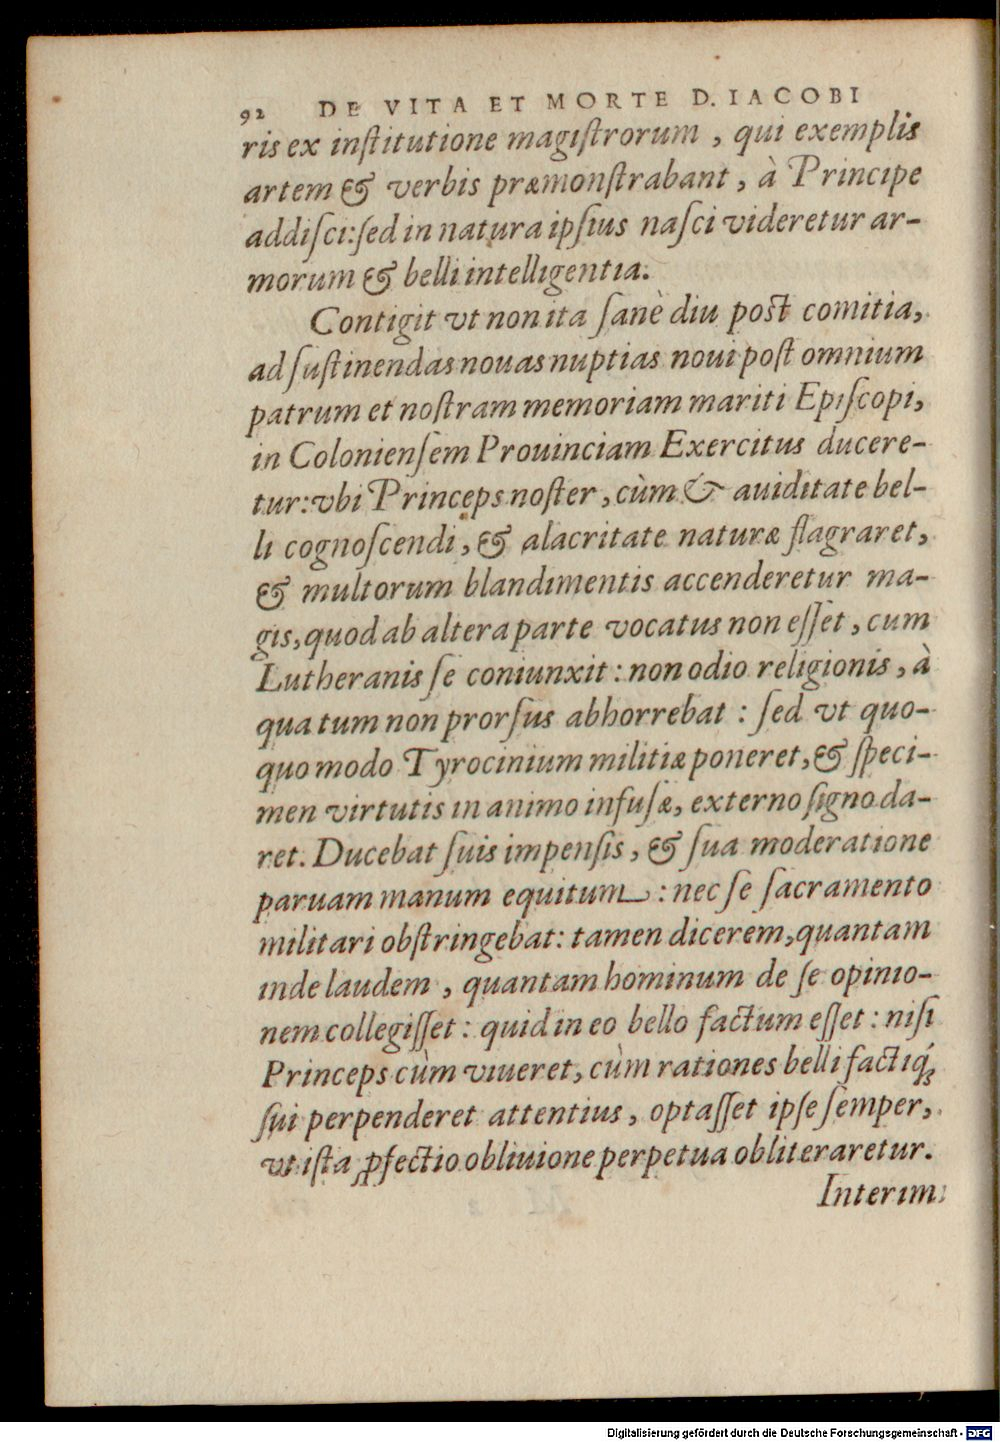 92 DE VITA ET MORTE D. IACOBI
ris ex inſtitutione magiſtrorum , qui exemplis
artem & verbis præmonſtrabant , à Principe
addiſci: ſed in natura ipſius naſci videretur ar-
morum & belli intelligentia.
Contigit vt non ita ſanè diu poſt comitia,
ad ſuſtinendas nouas nuptias noui poſt omnium
patrum et noſtram memoriam mariti Epiſcopi,
in Colonienſem Prouinciam Exercitus ducere-
tur: vbi Princeps noſter , cùm & auiditate bel-
li cognoſcendi , & alacritate naturæ flagraret,
& multorum blandimentis accenderetur ma-
gis, quod ab altera parte vocatus non eſſet , cum
Lutheranis ſe coniunxit : non odio religionis , à
qua tum non prorſus abhorrebat : ſed vt quo-
quo modo Tyrocinium militiæ poneret, & ſpeci-
men virtutis in animo infuſæ, externo ſigno da-
ret. Ducebat ſuis impenſis , & ſua moderatione
paruam manum equitum : nec ſe ſacramento
militari obſtringebat: tamen dicerem, quantam
inde laudem , quantam hominum de ſe opinio-
nem collegiſſet : quid in eo bello factum eſſet : niſi
Princeps cùm viueret, cùm rationes belli factiq́;
ſui perpenderet attentius , optaſſet ipſe ſemper,
vt iſta ꝓfectio obliuione perpetua obliteraretur.
Interim
Digitalisierung gefördert durch die Deutsche Forschungsgemeinschaft - DFG